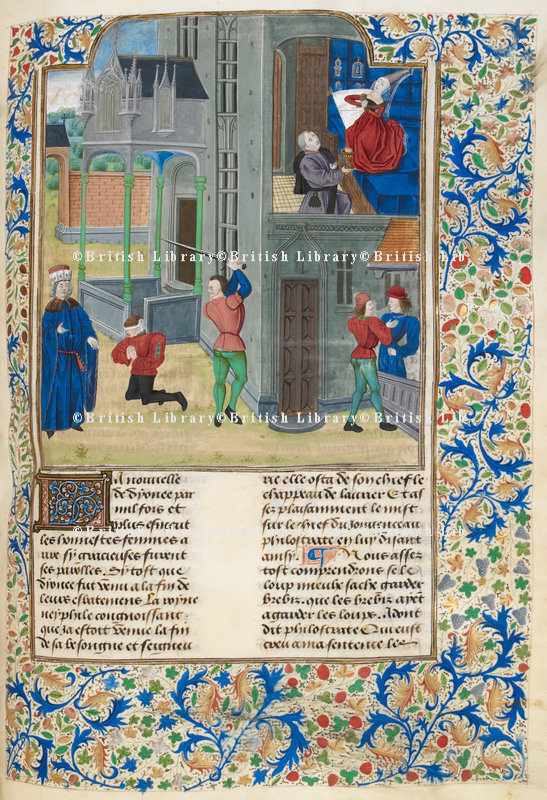 ©British Library©British Library©British Lib
©British Library©British Library©British Lib
La nouuelle
de dyonee par
mil fois et
plus esmeut
les honnestes femmes a
rire sy gracieuses furent
les parolles. Sy tost que
dyonee fut venu a la fin de
leurs esbatemens. La royne
neyphile congnoissant
que ia estoit venue la fin
de sa besongne et seigneu
rie elle osta de son chief le
chappeau de laurier Et as
sez plaisamment le mist
sur le chief du iouuenceau
philostrate en luy disant
ainsy. Nous assez
tost comprendrons se le
loup mieulx sache garder
brebiz que les brebiz
a garder les loups. Adont
dit philostrate Qui eust
creu a ma sentence les